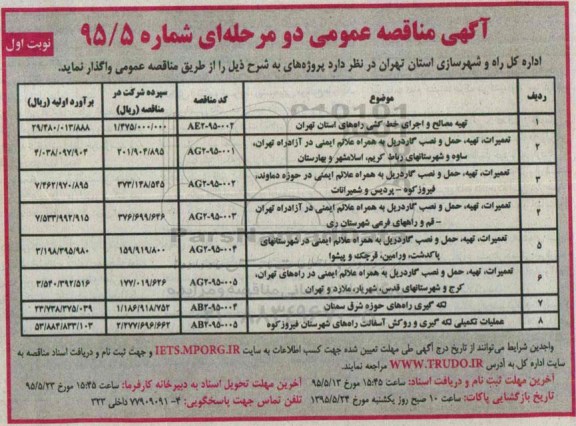 آگهی مناقصه عمومی دو مرحله‌ای شماره ۹۵/۵
نوبت اول
اداره کل راه و شهرسازی استان تهران در نظر دارد پروژه‌های به شرح ذیل را از طریق مناقصه عمومی واگذار نماید.
ردیف موضوع کد مناقصه سپرده شرکت در مناقصه (ریال) برآورد اولیه (ریال)
۱ تهیه مصالح و اجرای خط کشی راه‌های استان تهران AE۲-۹۵-۰۰۲ ۱/۴۷۵/۰۰۰/۰۰۰ ۲۹/۴۸۰/۰۱۳/۸۸۸
۲ تعمیرات، تهیه، حمل و نصب گاردریل به همراه علائم ایمنی در آزادراه تهران،
ساوه و شهرستانهای رباط کریم، اسلامشهر و بهارستان AG۲-۹۵-۰۰۱ ۲۰۱/۹۰۴/۸۹۵ ۴/۰۳۸/۰۹۷/۹۰۴
۳ تعمیرات، تهیه، حمل و نصب گاردریل به همراه علائم ایمنی در حوزه دماوند،
فیروزکوه - پردیس و شمیرانات AG۲-۹۵-۰۰۲ ۳۷۳/۱۴۸/۵۴۵ ۷/۴۶۲/۹۷۰/۸۹۵
۴ تعمیرات، تهیه، حمل و نصب گاردریل به همراه علائم ایمنی در آزادراه تهران
- قم و راههای فرعی شهرستان ری AG۲-۹۵-۰۰۳ ۳۷۶/۶۹۹/۶۴۶ ۷/۵۳۳/۹۹۲/۹۱۵
۵ تعمیرات، تهیه، حمل و نصب گاردریل به همراه علائم ایمنی در شهرستانهای
پاکدشت، ورامین، قرچک و پیشوا AG۲-۹۵-۰۰۴ ۱۵۹/۹۱۹/۸۰۰ ۳/۱۹۸/۳۹۵/۹۸۰
۶ تعمیرات، تهیه، حمل و نصب گاردریل به همراه علائم ایمنی در راه‌های تهران،
کرج و شهرستانهای قدس، شهریار، ملارد و تهران AG۲-۹۵-۰۰۵ ۱۷۷/۰۱۹/۶۲۶ ۳/۵۴۰/۳۹۲/۵۱۶
۷ لکه گیری راه‌های حوزه شرق سمنان AB۲-۹۵-۰۰۴ ۱/۱۸۶/۹۱۸/۷۵۲ ۲۳/۷۳۸/۳۷۵/۰۳۹
۸ عملیات تکمیلی لکه گیری و روکش آسفالت راه‌های شهرستان فیروزکوه AB۲-۹۵-۰۰۵ ۲/۴۷۷/۶۹۶/۶۶۲ ۵۳/۸۸۴/۸۳۳/۱۰۳
واجدین شرایط می‌توانند از تاریخ درج آگهی طی مهلت تعیین شده جهت کسب اطلاعات به سایت IETS.MPORG.IR و جهت ثبت نام و دریافت اسناد مناقصه به
سایت اداره کل به آدرس WWW.TRUDO.IR مراجعه نمایند.
آخرین مهلت ثبت نام و دریافت اسناد: ساعت ۱۵:۴۵ مورخ ۹۵/۵/۱۲ آخرین مهلت تحویل اسناد به دبیرخانه کارفرما: ساعت ۱۵:۴۵ مورخ ۹۵/۵/۲۳
تاریخ بازگشایی پاکات: ساعت ۱۰ صبح روز یکشنبه مورخ ۱۳۹۵/۵/۲۴ تلفن تماس جهت پاسخگویی: ۴-۷۷۹۰۹۰۹۱ داخلی ۳۲۳